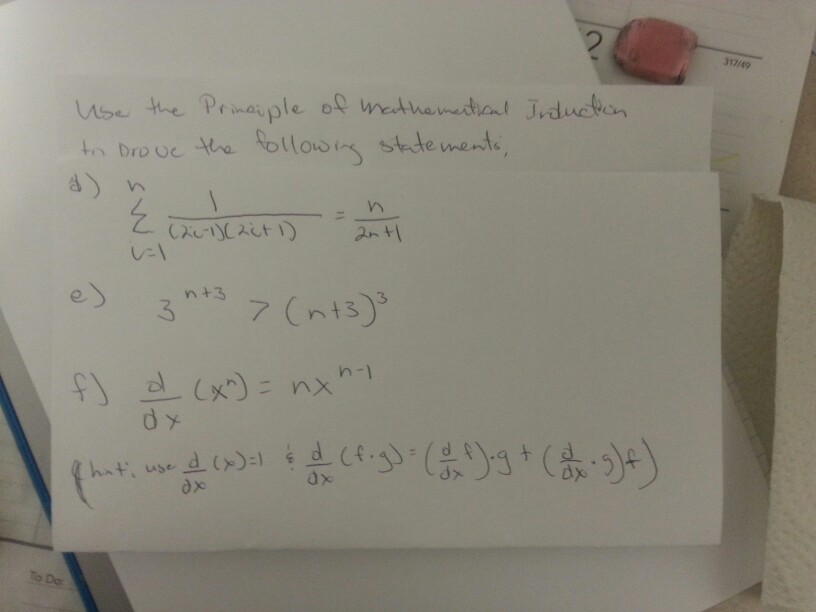 2
317/49
Use the Principle of Mathematical Induction
to prove the following statements,
d) n
Σ 1/((2i-1)(2i+1)) = n/(2n+1)
i=1
e) 3^(n+3) > (n+3)^3
f) d/dx (x^n) = nx^(n-1)
(hint: use d/dx (x)=1 & d/dx (f·g) = (d/dx f)·g + (d/dx · g)f)
To Do: